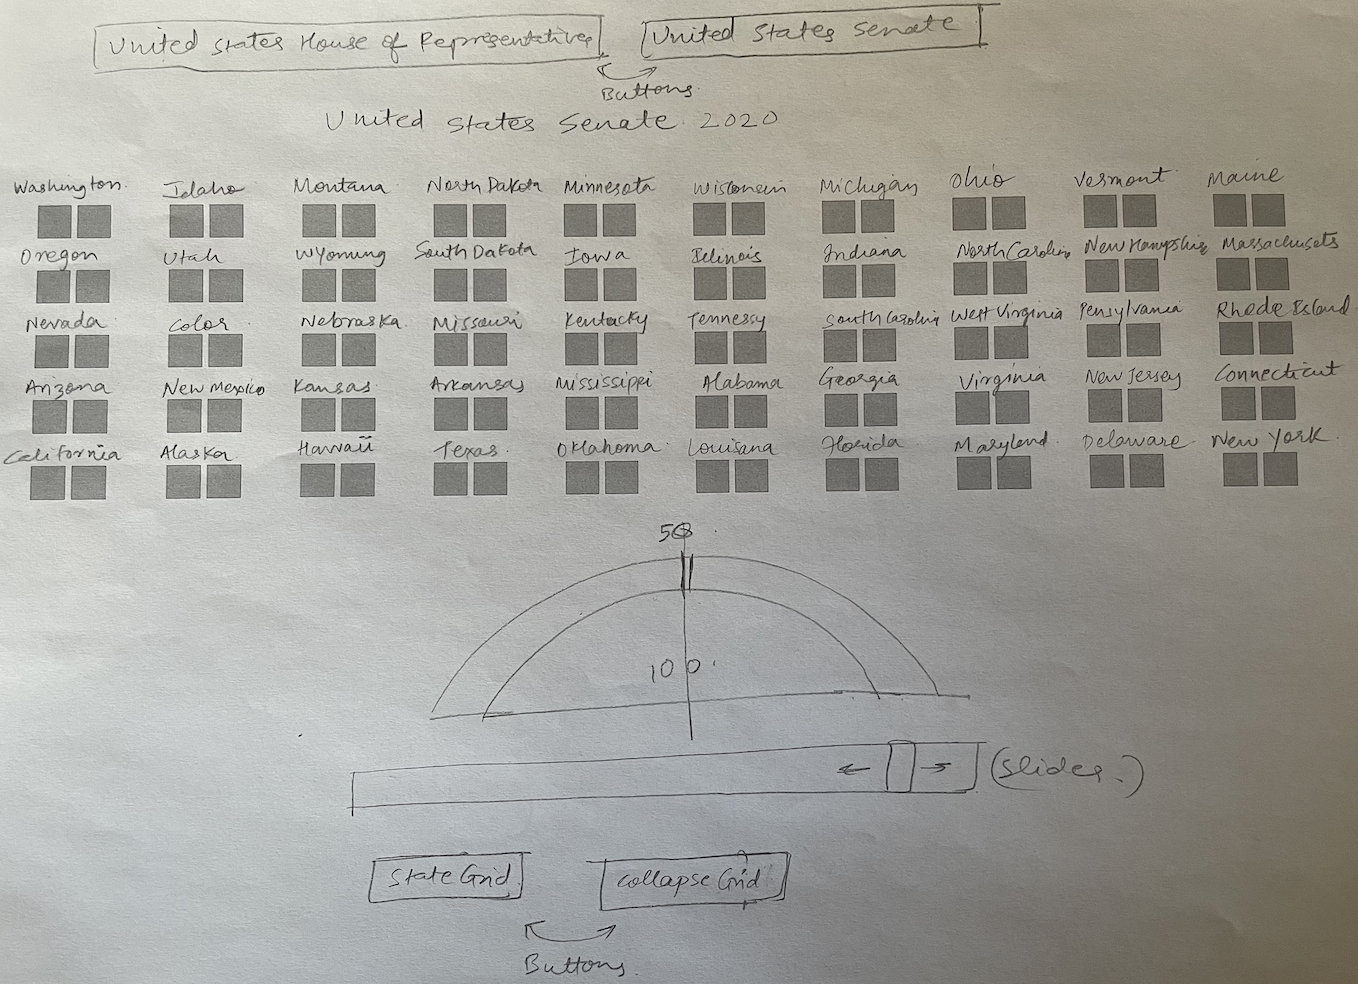 United States House of Representatives United States Senate
Buttons
United States Senate 2020
Washington Idaho Montana North Dakota Minnesota Wisconsin Michigan Ohio Vermont Maine
Oregon Utah Wyoming South Dakota Iowa Illinois Indiana North Carolina New Hampshire Massachusets
Nevada Color Nebraska Missouri Kentacky Tennessy South Carolina West Virginia Pensylvania Rhode Island
Arizona New Mexico Kansas Arkansas Mississippi Alabama Georgia Virginia New Jersey Connecticut
California Alaska Hawaii Texas Oklahoma Louisana Florida Maryland Delaware New York
50
100
(Slider)
State Grid Collapse Grid
Buttons